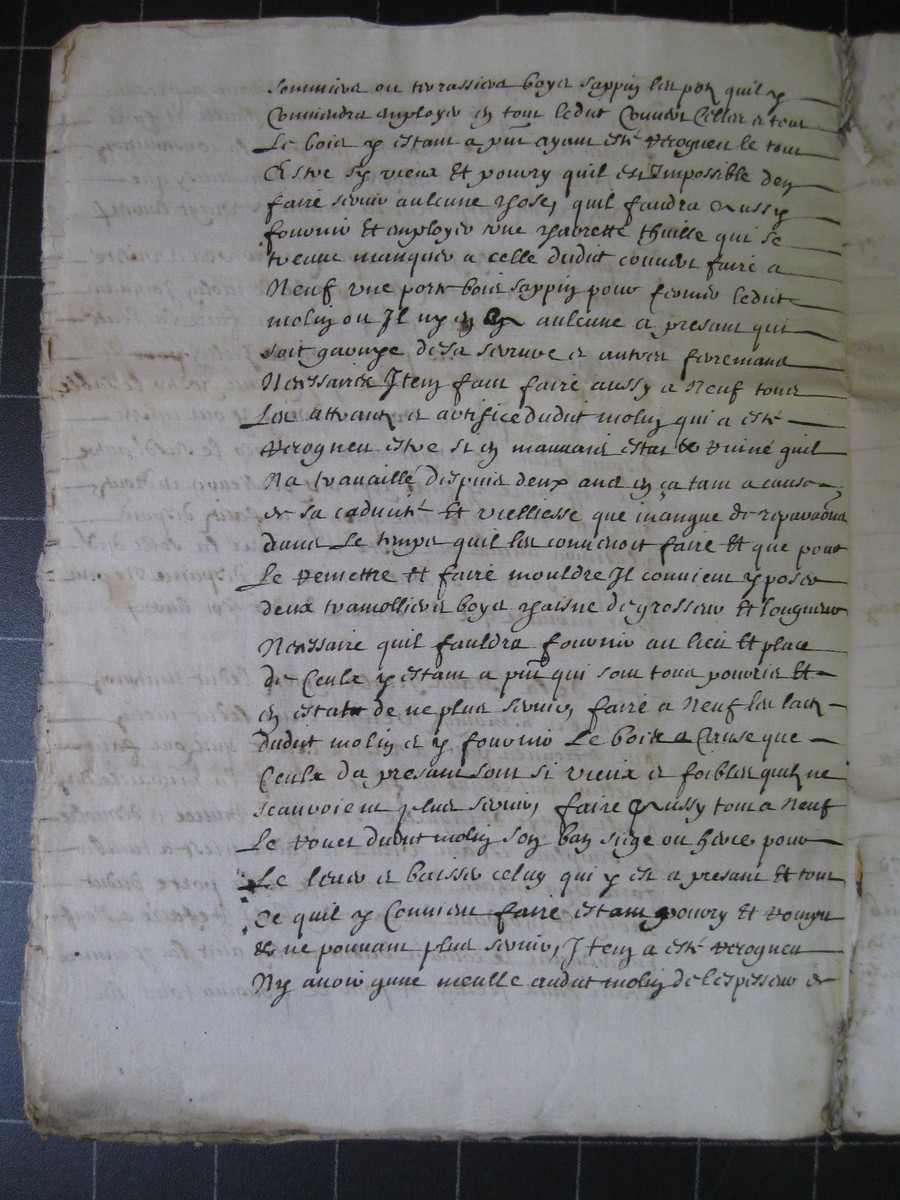 sommiers ou terrassiers boys sappin les posts quil y
conviendra employer en tout ledict couvert celluy et tout
Le bois y estant a pnt ayant esté recogneu le tout
Estre sy vieux Et pourry quil est Impossible den
faire servir aulcune chose, quil faudra aussy
fournir Et employer une charrette thuille qui se
treuve manquer a celle dudict couvert faire a
Neuf une porte bois sappin pour fermer ledict
molin ou Il ny en a aulcune a presant qui
soit garnye de sa serrure et autres ferremens
Nessaires Item faut faire aussy a Neuf tous
Les attraitz et artifice dudict molin qui a esté
Recogneu estre si en mauvais estat & ruiné quil
Na travaillé despuis deux ans en ça tant a cause
de sa caducité Et vielliesse que manque de reparaõns
dans Le temps quil les convenoit faire Et que pour
Le remettre Et faire mouldre Il convient y poser
deux tramolliers boys chaisne de grosseur Et longueur
Nessaire quil fauldra fournir au lieu Et place
de Ceulx y estant a pnt qui sont tous pourris Et
en estat de ne plus servir, faire a Neuf les
dudict molin et y fournir Le bois a Cause que
Ceulx da presant sont si vieux et foibles quilz ne
scauroient plus servir, faire aussy tout a Neuf
Le rouet dudict molin son ban siege ou pour
Le lever et baisser celuy qui y est a presant Et tout
Ce quil y Convient faire estant pourry Et rompu
& ne pouvant plus servir, Item a esté recogneu
Ny avoir qune meulle audict molin de lespesseur de